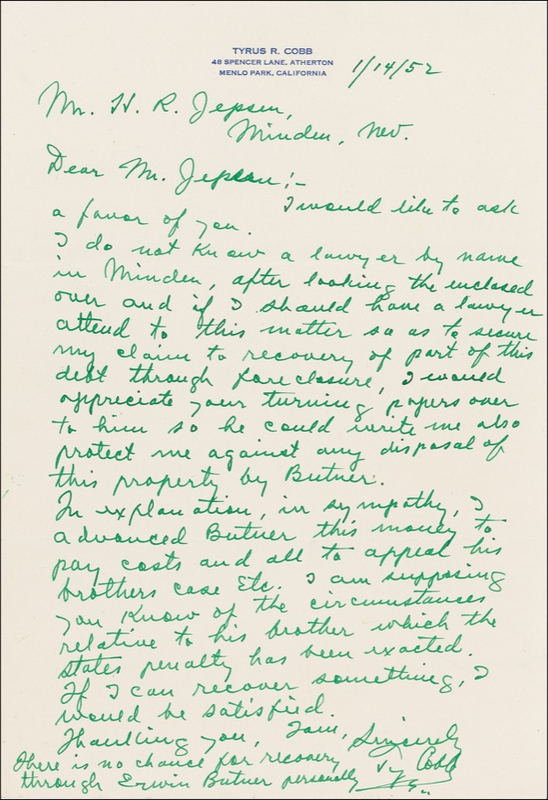 TYRUS R. COBB
48 SPENCER LANE, ATHERTON
MENLO PARK, CALIFORNIA
1/14/52
Mr. H. R. Jepsen,
Minden, Nev.
Dear Mr. Jepsen;-
I would like to ask
a favor of you.
I do not know a lawyer by name
in Minden, after looking the enclosed
over and if I should have a lawyer
attend to this matter so as to secure
my claim to recovery of part of this
debt through foreclosure, I would
appreciate your turning papers over
to him so he could write me also
protect me against any disposal of
this property by Butner.
In explanation, in sympathy, I
advanced Butner this money to
pay costs and all to appeal his
brothers case Etc. I am supposing
you know of the circumstances
relative to his brother which the
states penalty has been exacted.
If I can recover something, I
would be satisfied.
Thanking you, I am, Sincerely
Ty Cobb
There is no chance for recovery
through Erwin Butner personally